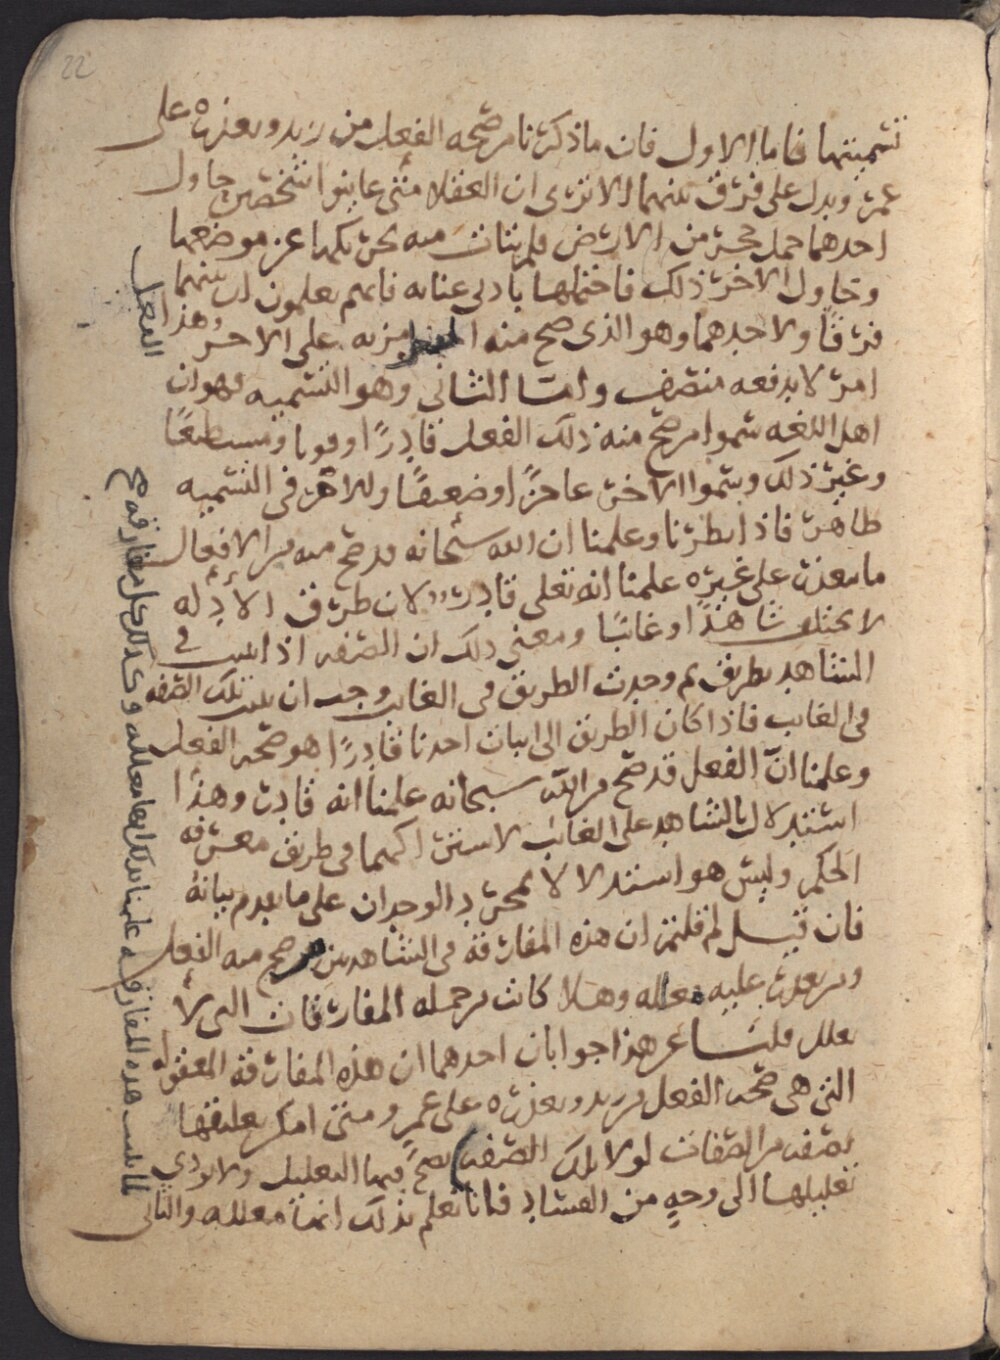 22
تسميتها فاما الاول فان ما ذكرنا من صحه الفعل من زيد وتعذره على
عمرو يدل على فرق بينهما الا ترى ان العقلا متى عاينوا شخصين حاول
احدهما حمل حجر من الارض فلم يتات منه تحريكها عن موضعها
وحاول الاخر ذلك فاحتملها بادنى عنايه فانهم يعلمون ان بينهما
فرقا ولاحدهما وهو الذي صح منه مزيه على الاخر وهذا
الفعل
امر لا يدفعه منصف واما الثاني وهو التسميه فهو ان
اهل اللغه سموا من صح منه ذلك الفعل قادرًا او قويا ومستطيعًا
وغير ذلك وسموا الاخر عاجزًا او ضعيفًا والامر في التسميه
ظاهر فاذا نظرنا وعلمنا ان الله سبحانه قد صح منه من الافعال
ما يتعذر على غيره علمنا انه تعلى قادر لان طرق الادله
لا تختلف شاهدًا او غائبًا ومعنى ذلك ان الصفه اذا ثبتت في
الشاهد بطريق ثم وجدت الطريق في الغايب وجب ان تثبت تلك الصفه
في الغايب فاذا كان الطريق الى اثبات احدنا قادرًا هو صحه الفعل
وعلمنا انّ الفعل قد صح من الله سبحانه علمنا انه قادر وهذا
استدلال بالشاهد على الغائب لاشتراكهما في طريق معرفه
الحكم وليس هو استدلالا لا بمجرد الوجدان على ما تقدم بيانه
فان قيل لم قلتم ان هذه المفارقه في الشاهد بين من صح منه الفعل
ومن تعذر عليه معلله وهلا كانت من جمله المفارقات التي لا
تعلل قلنا عن هذا جوابان احدهما ان هذه المفارقه المعقوله
التي هي صحه الفعل من زيد وتعذره على عمرو متى امكن تعليقها
بصفه من الصفات لولا تلك الصفه صح فيها التعليل ولا يودي
تعليلها الى وجهٍ من الفساد فانا نعلم بذلك انها معلله والثاني
هذه المفارقه علمنا بذلك انها معلله وكذلك كل مفارقه